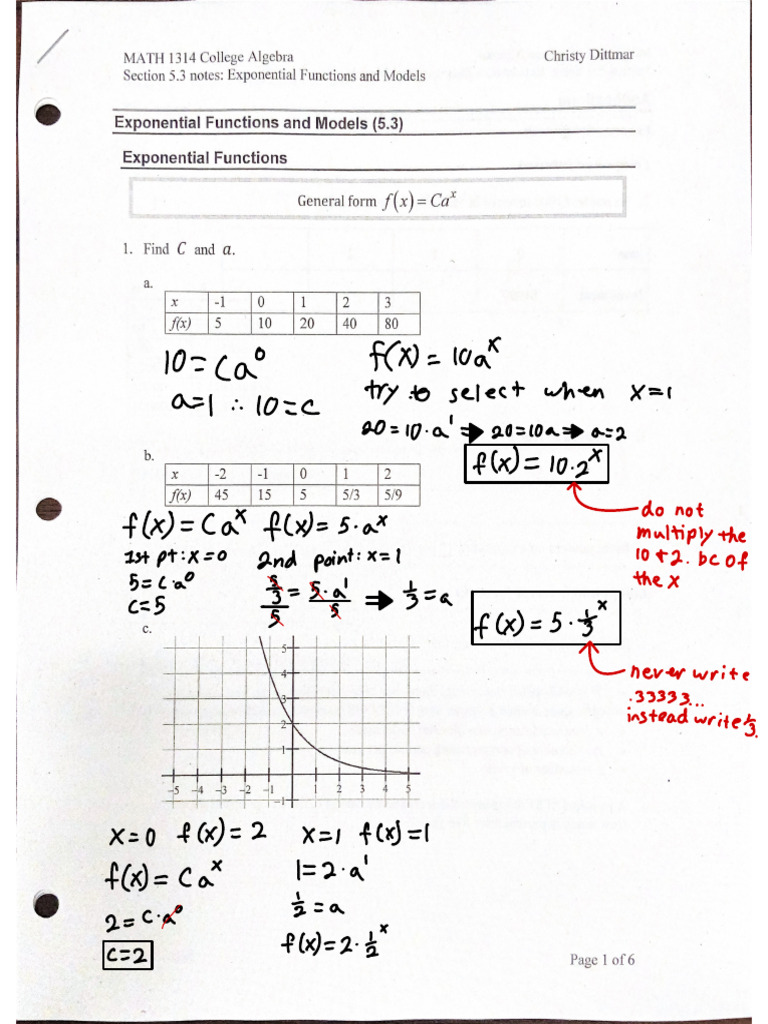 MATH 1314 College Algebra
Christy Dittmar
Section 5.3 notes: Exponential Functions and Models
Exponential Functions and Models (5.3)
Exponential Functions
General form f(x) = Ca^x
1. Find C and a.
a.
x -1 0 1 2 3
f(x) 5 10 20 40 80
10 = Ca^0
a=1 ∴ 10=C
f(x) = 10a^x
try to select when x=1
20=10·a^1 ⇒ 20=10a ⇒ a=2
f(x) = 10·2^x
do not
multiply the
10 & 2. bc of
the x
b.
x -2 -1 0 1 2
f(x) 45 15 5 5/3 5/9
f(x) = Ca^x f(x) = 5·a^x
1st pt: x=0 2nd point: x=1
5=C·a^0
C=5
5/3/5 = 5·a^1/5 ⇒ 1/3 = a
f(x) = 5·1/3^x
never write
.33333...
instead write 1/3.
c.
5
4
3
2
1
-5 -4 -3 -2 -1 1 2 3 4 5
-1
x=0 f(x) = 2
f(x) = Ca^x
2 = C·a^0
C=2
x=1 f(x) = 1
1=2·a^1
1/2 = a
f(x) = 2·1/2^x
Page 1 of 6